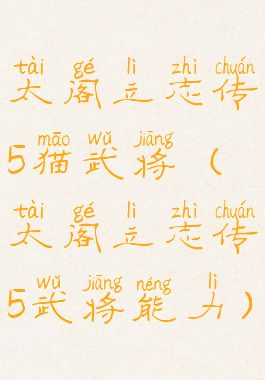 tài gé lì zhì chuán
太阁立志传
māo wǔ jiāng
5猫武将（
tài gé lì zhì chuán
太阁立志传
wǔ jiāng néng lì
5武将能力）